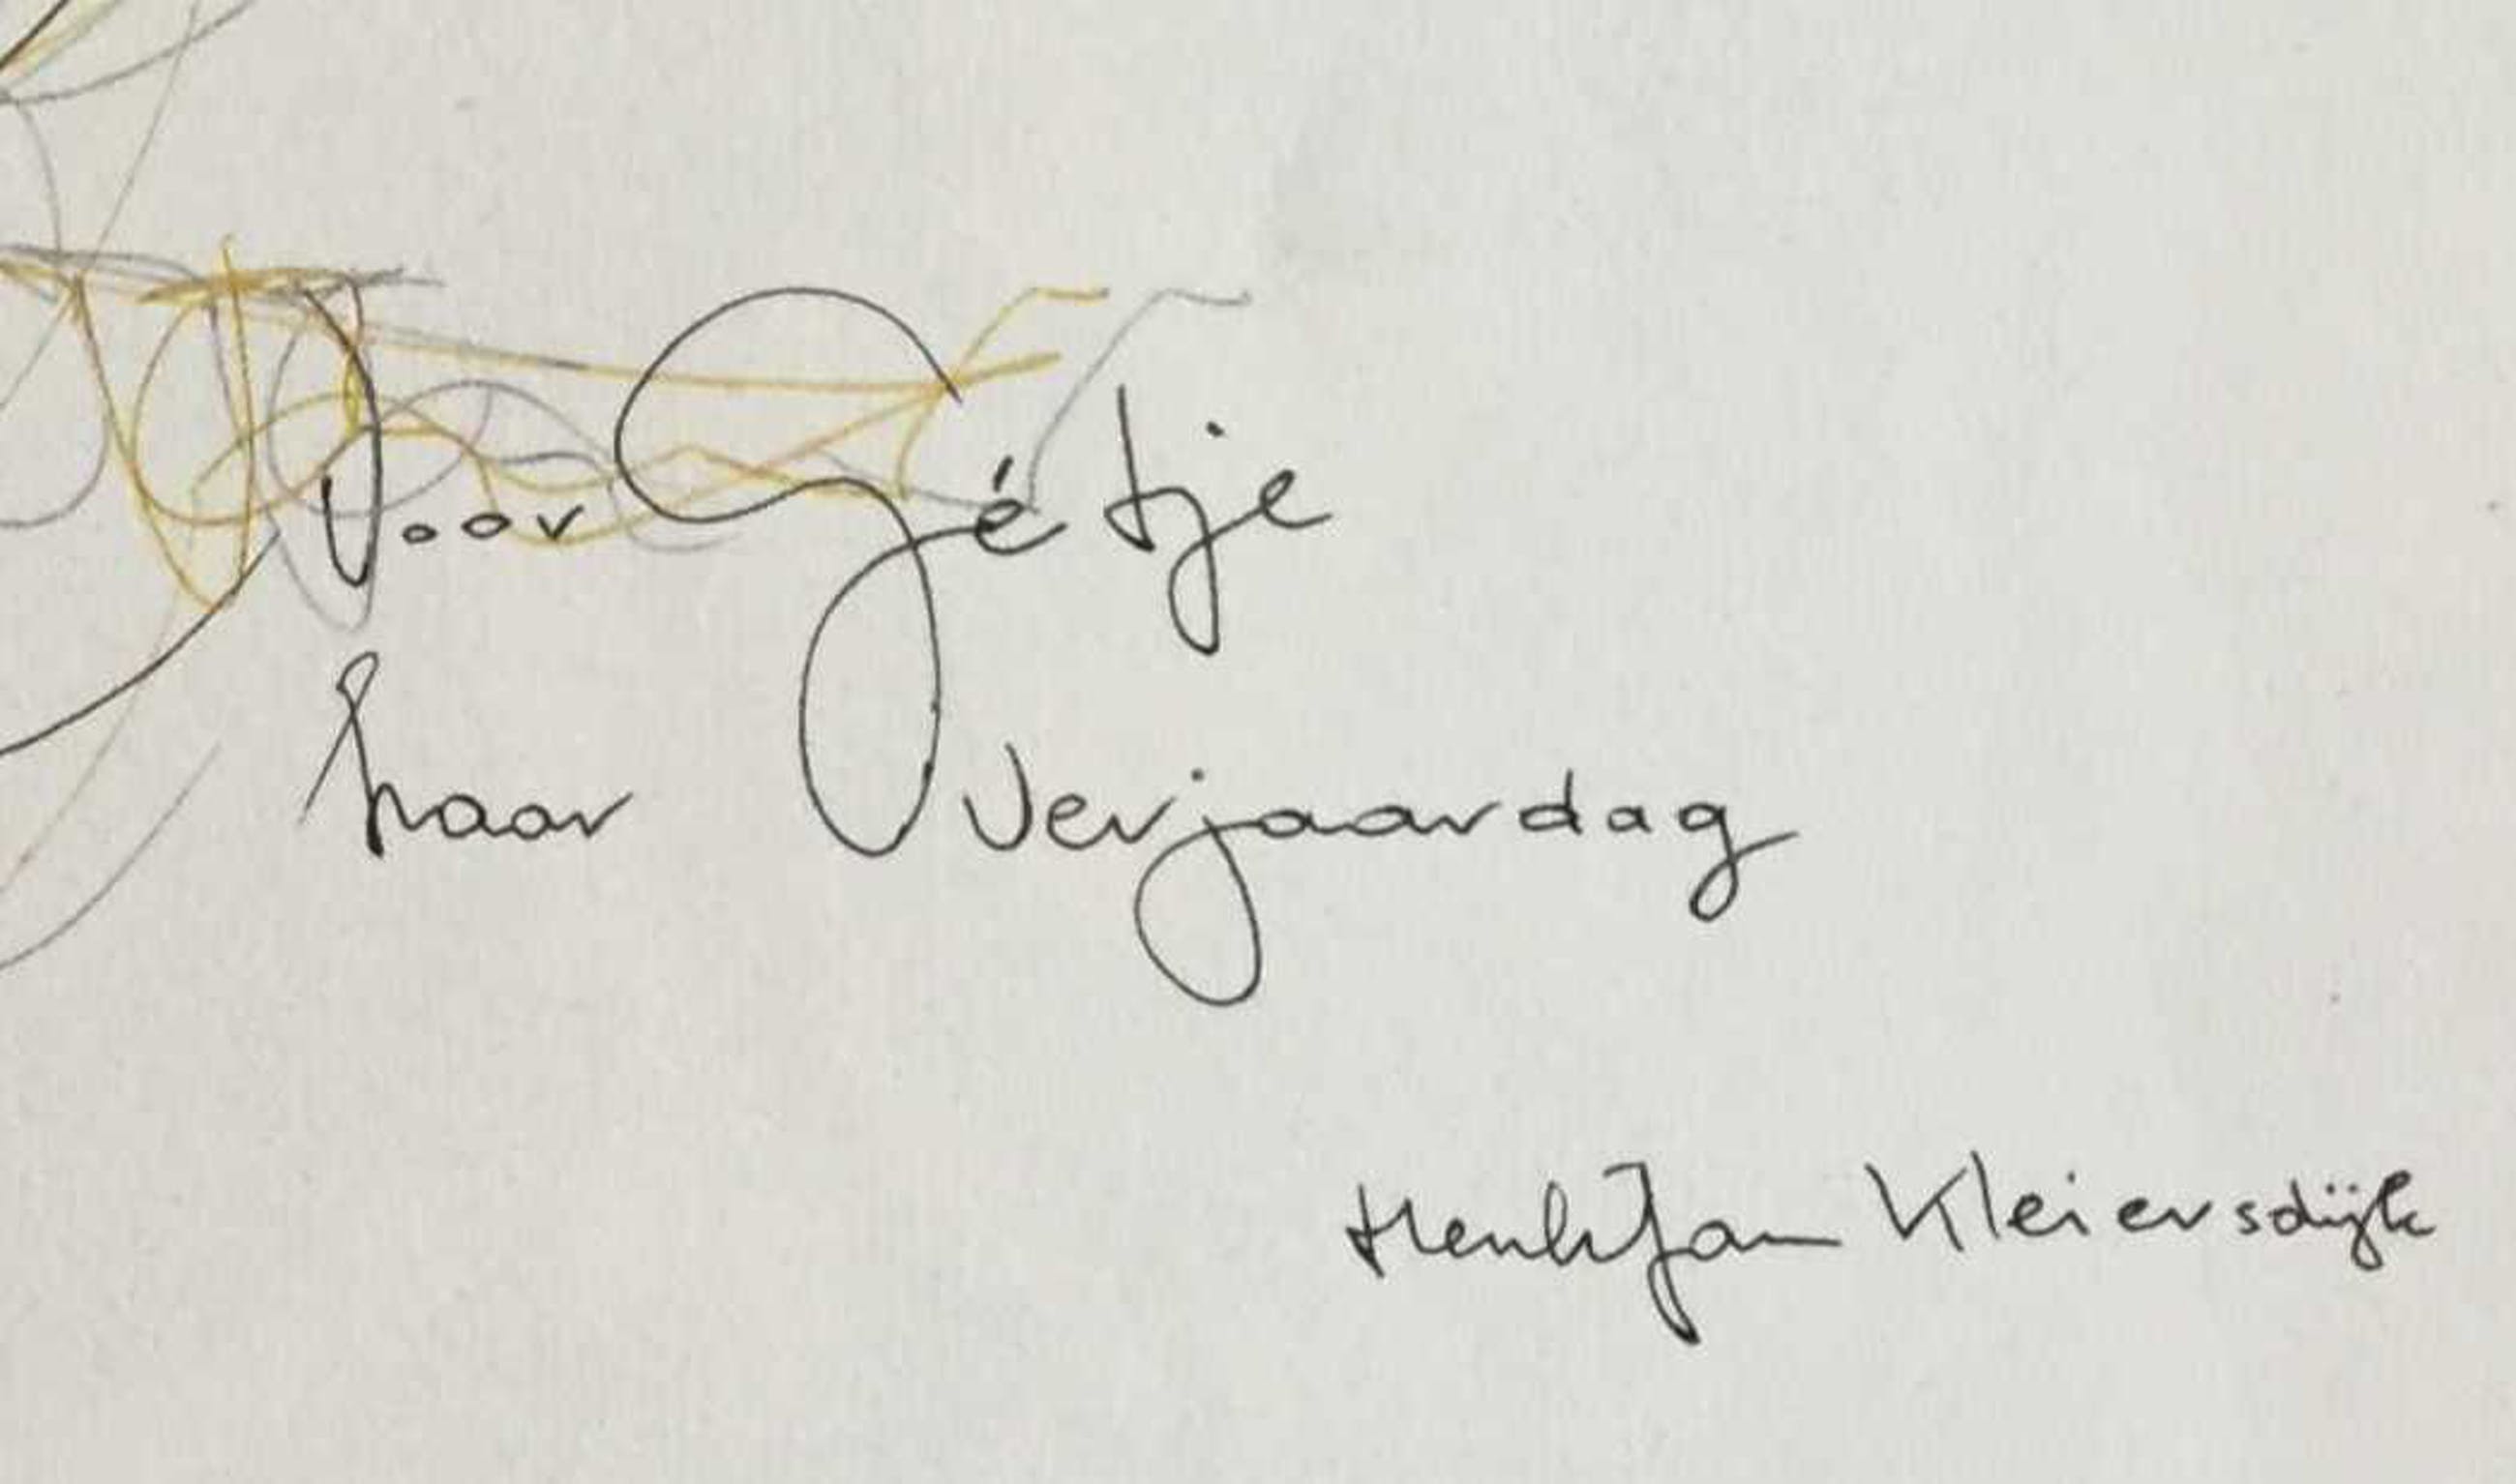 Voor Gétje
haar verjaardag
HenkJan Kleiersdijk